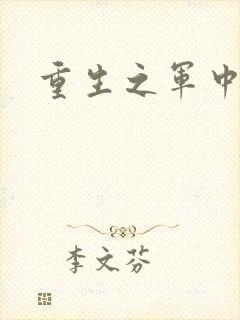 重生之军中
李文芬